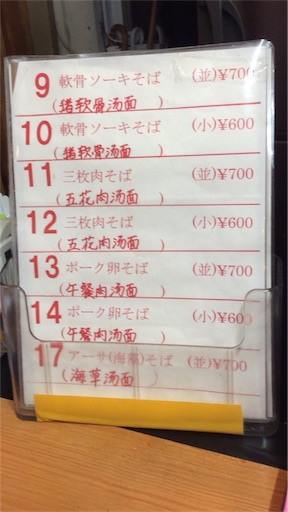 9 軟骨ソーキそば (並)¥700
(猪软骨汤面)
10 軟骨ソーキそば (小)¥600
(猪软骨汤面)
11 三枚肉そば (並)¥700
(五花肉汤面)
12 三枚肉そば (小)¥600
(五花肉汤面)
13 ポーク卵そば (並)¥700
(午餐肉汤面)
14 ポーク卵そば (小)¥600
(午餐肉汤面)
17 アーサ(海藻)そば (並)¥700
(海草汤面)